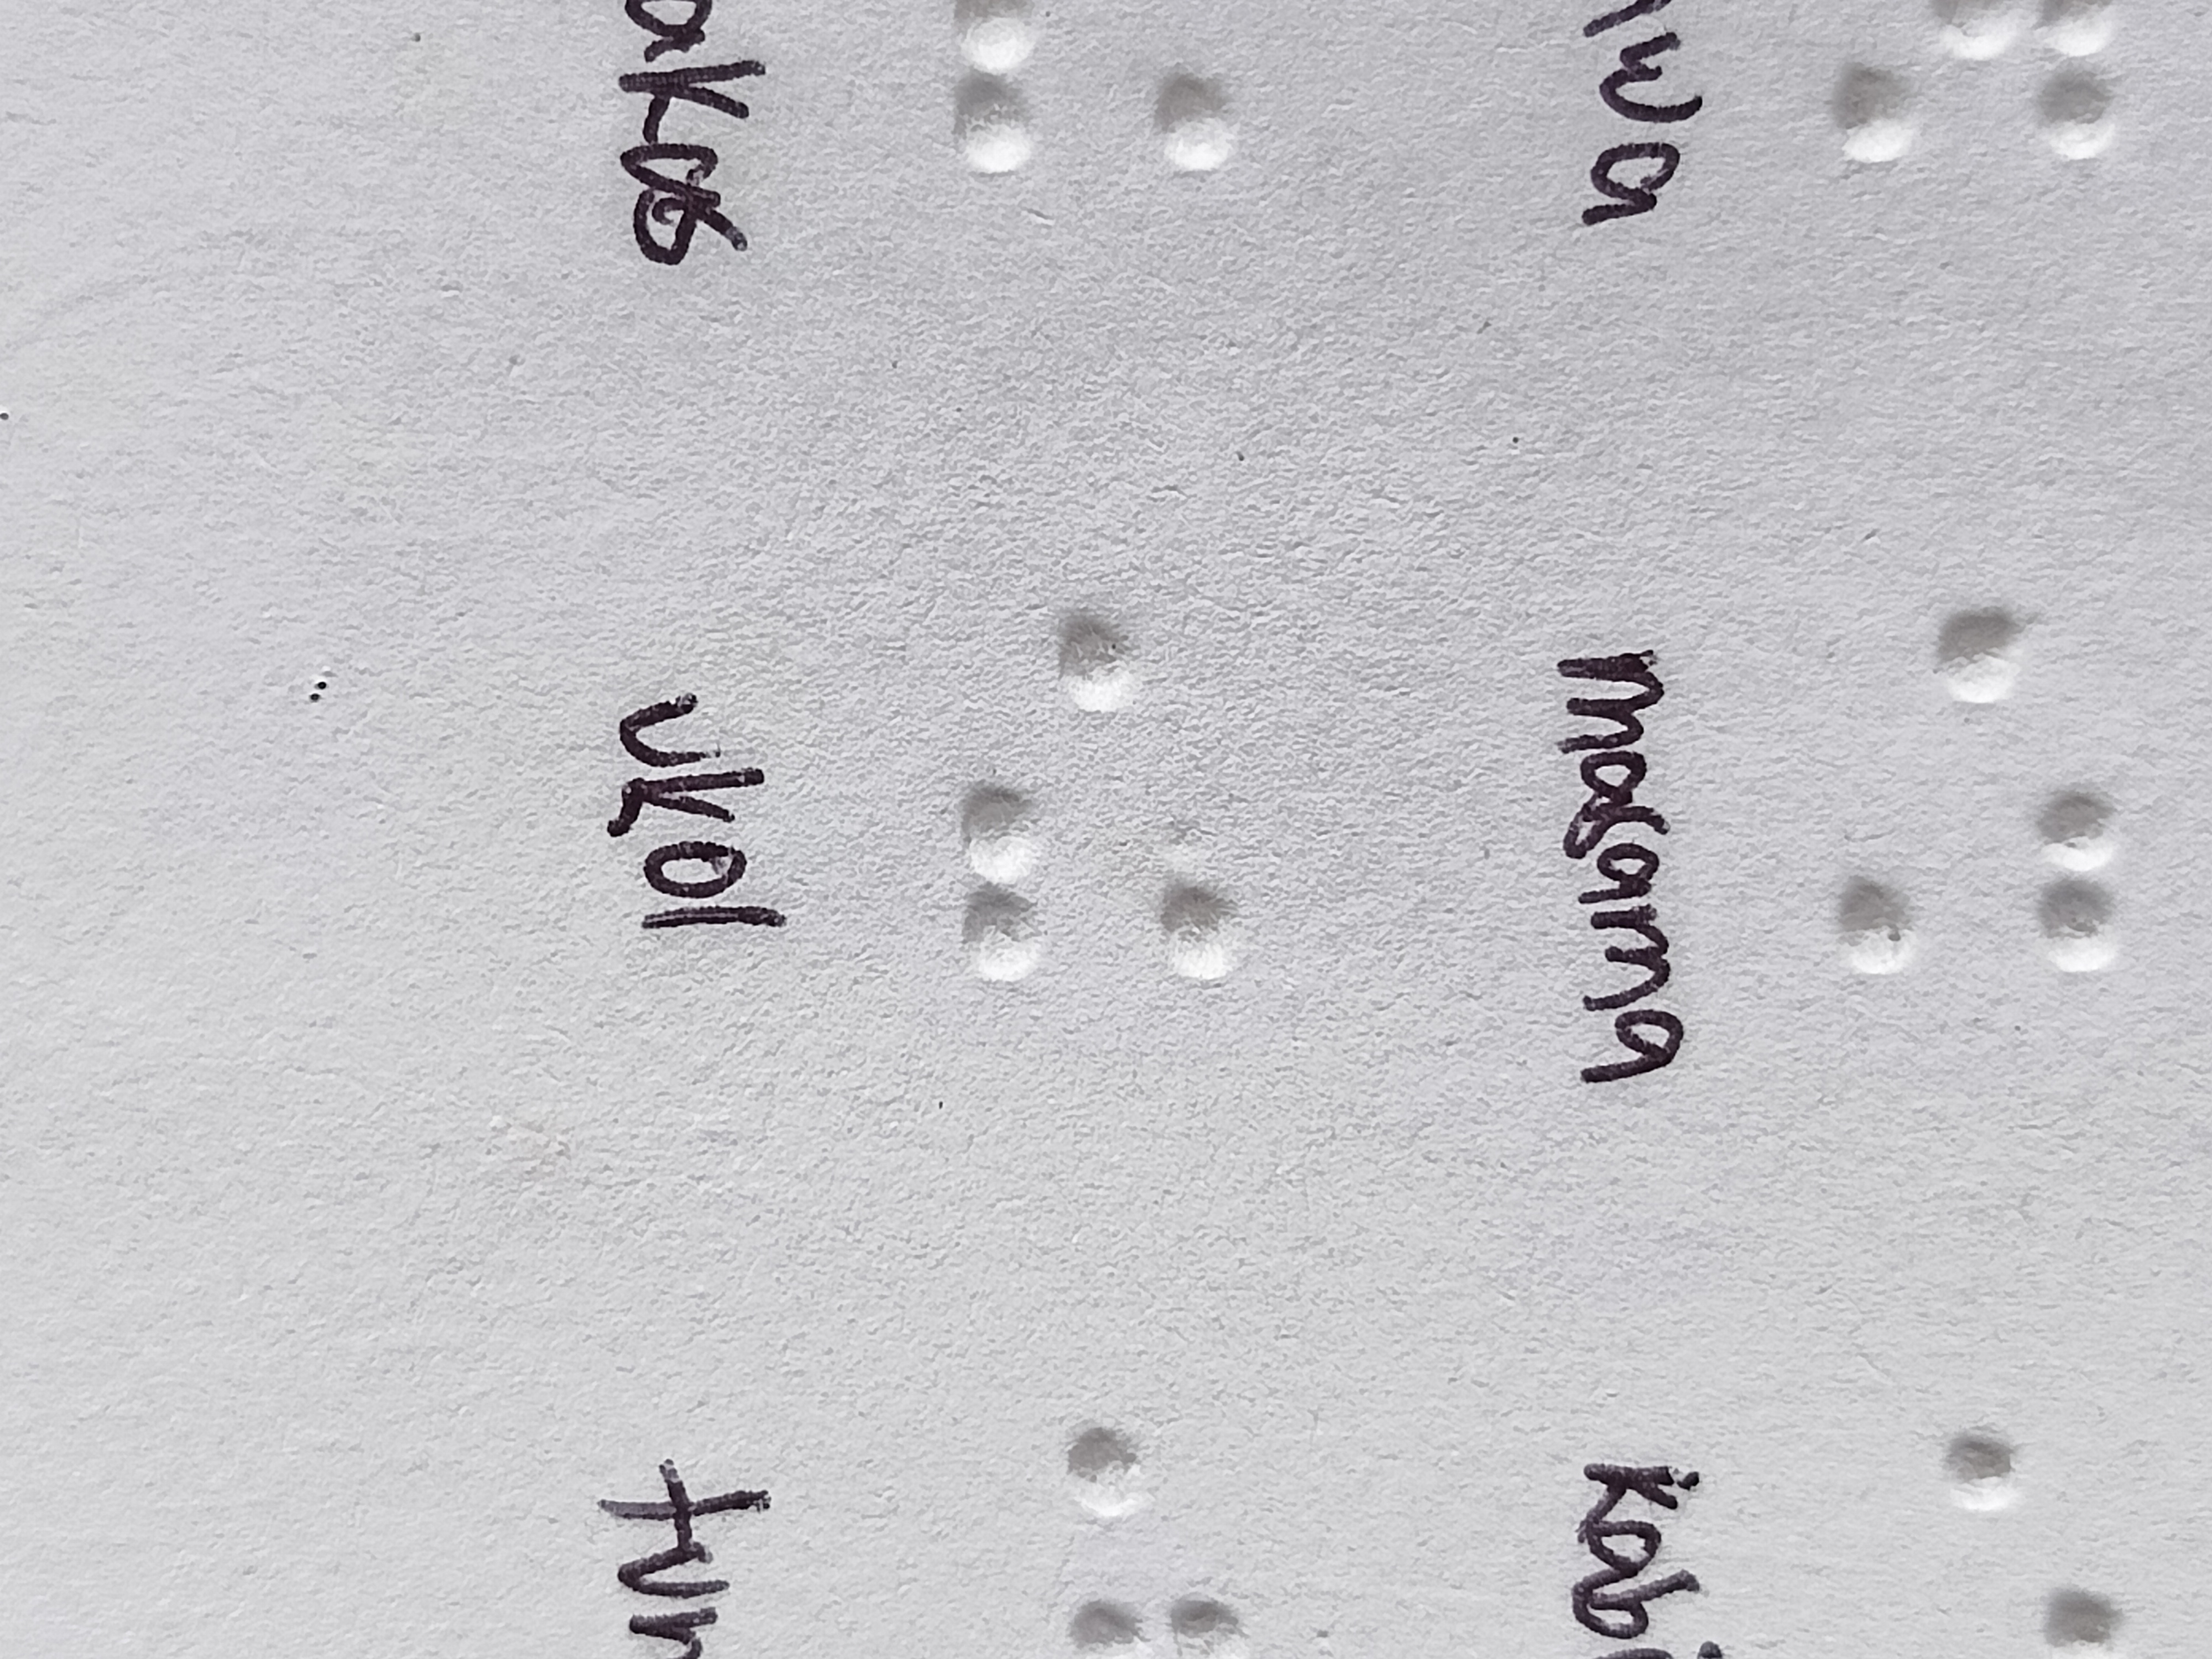 ⠫ ⠐⠩
wa masama kabi
⠬ ⠐⠬
akas ukol tun